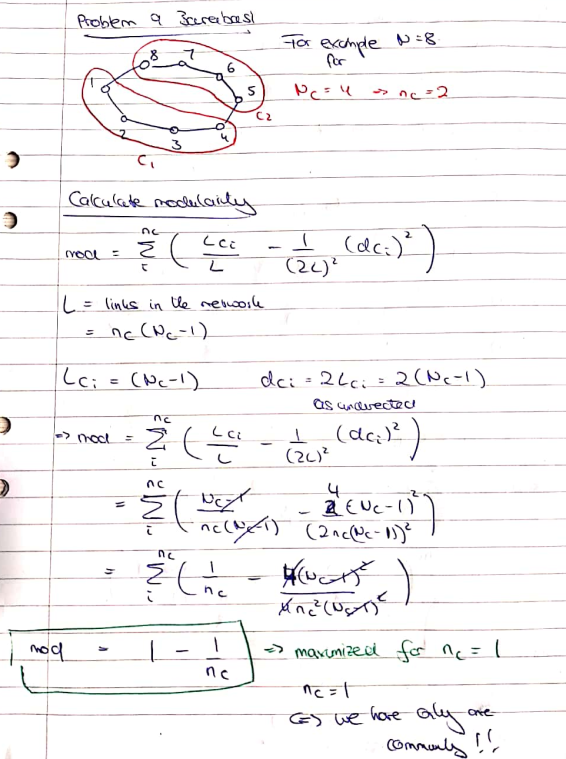 Problem 9 Barabasi
For example N=8
for
N_C = 4 => n_C = 2
8 7 6 5
1 2 3 4
C_2
C_1
Calculate modularity
mod = Σ_i^{n_C} ( L_{Ci} / L - 1 / (2L)^2 (d_{Ci})^2 )
L = links in the network
= n_C (N_C-1)
L_{Ci} = (N_C-1) d_{Ci} = 2L_{Ci} = 2(N_C-1)
as undirected
=> mod = Σ_i^{n_C} ( L_{Ci} / L - 1 / (2L)^2 (d_{Ci})^2 )
= Σ_i^{n_C} ( N_C-1 / n_C(N_C-1) - 4 (N_C-1)^2 / (2n_C(N_C-1))^2 )
= Σ_i^{n_C} ( 1 / n_C - 4(N_C-1)^2 / 4n_C^2(N_C-1)^2 )
mod = 1 - 1 / n_C => maximized for n_C = 1
n_C = 1
<=> we have only one
community !!